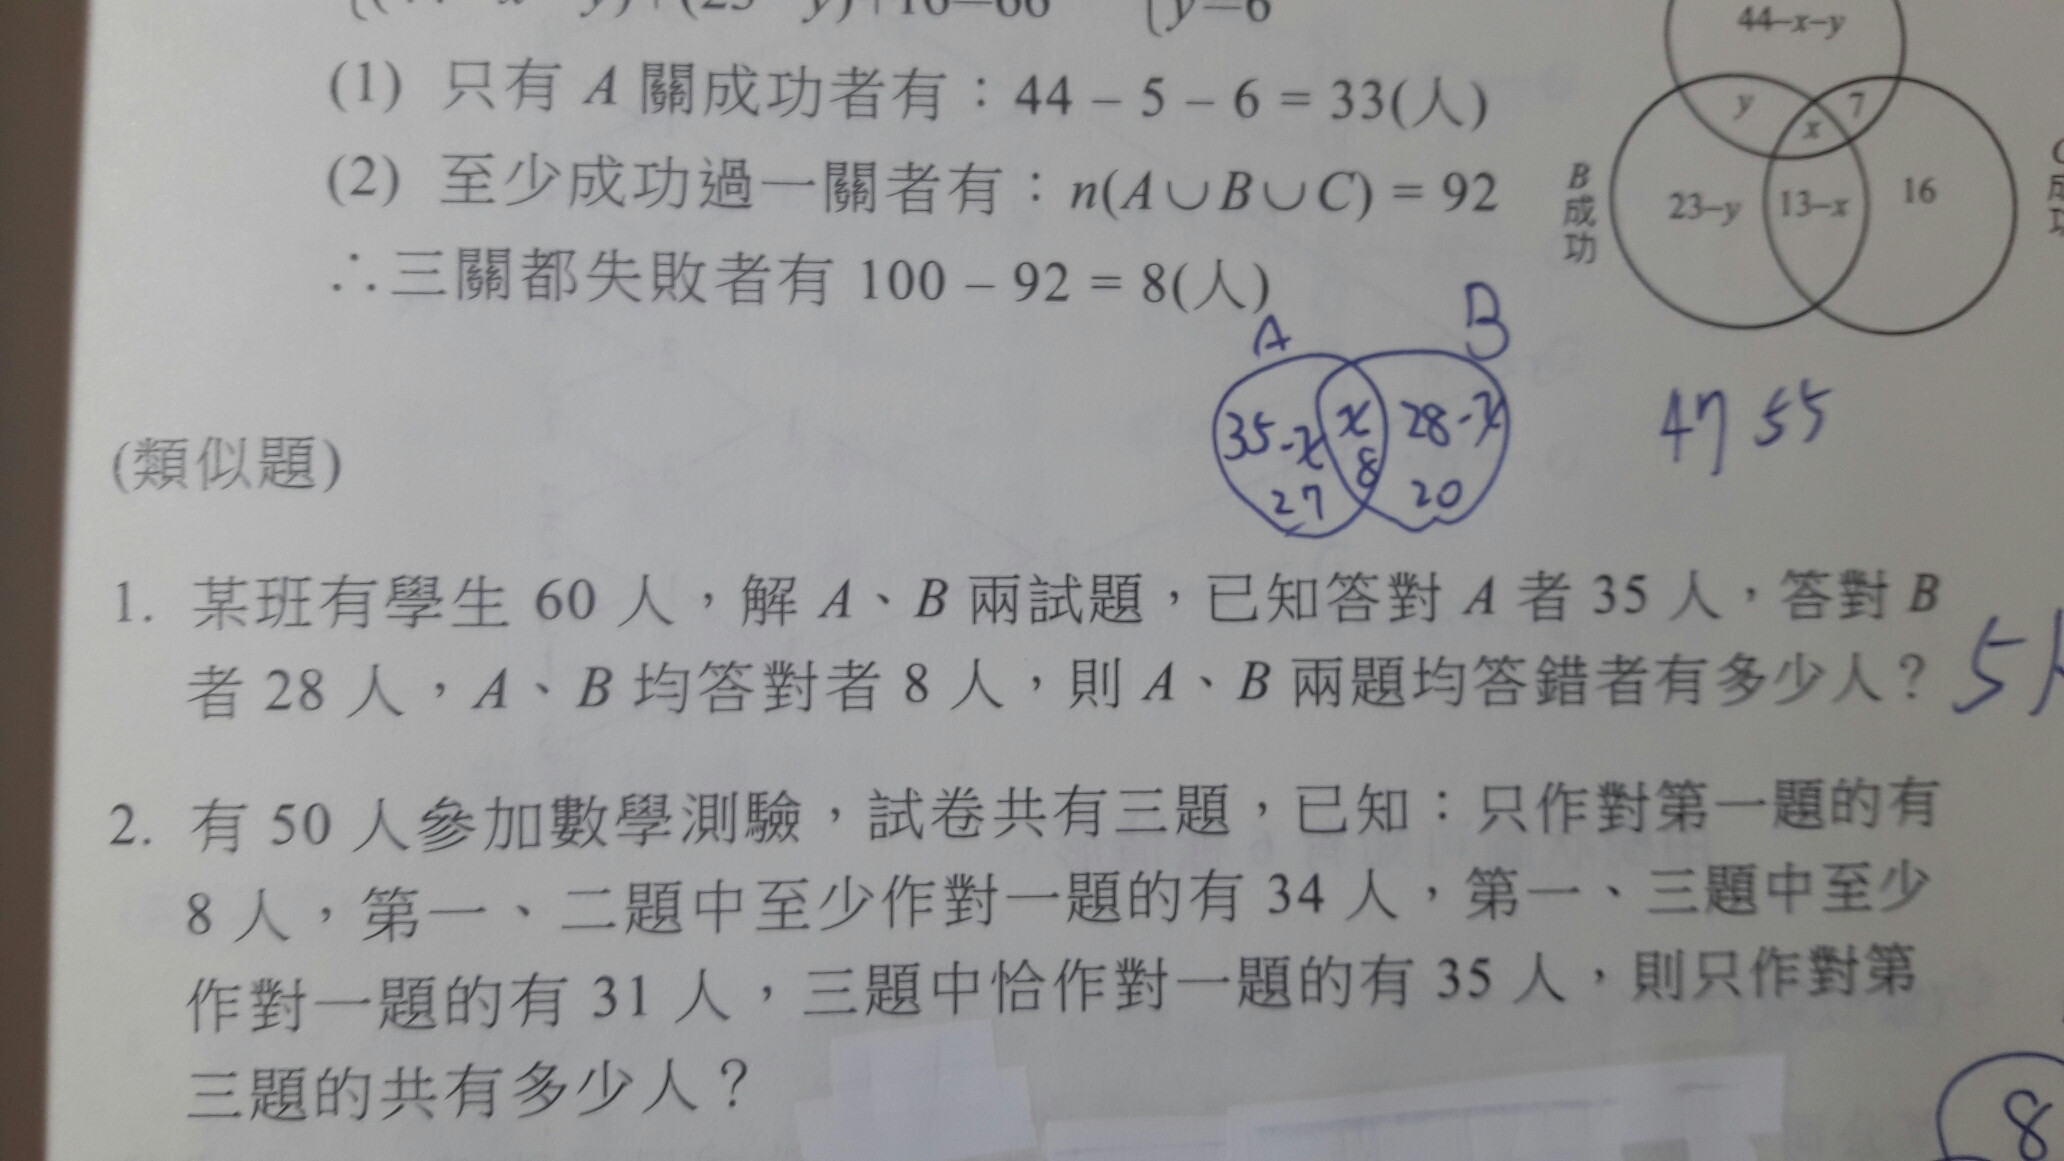 y=6
44–x–y
(1) 只有 A 關成功者有：44 – 5 – 6 = 33(人)
y
7
x
(2) 至少成功過一關者有：n(A∪B∪C) = 92
B成功
23–y
13–x
16
∴三關都失敗者有 100 – 92 = 8(人)
A
B
35-x
x
28-x
27
8
20
47 55
(類似題)
1. 某班有學生 60 人，解 A、B 兩試題，已知答對 A 者 35 人，答對 B
者 28 人，A、B 均答對者 8 人，則 A、B 兩題均答錯者有多少人？
5
2. 有 50 人參加數學測驗，試卷共有三題，已知：只作對第一題的有
8 人，第一、二題中至少作對一題的有 34 人，第一、三題中至少
作對一題的有 31 人，三題中恰作對一題的有 35 人，則只作對第
三題的共有多少人？
8